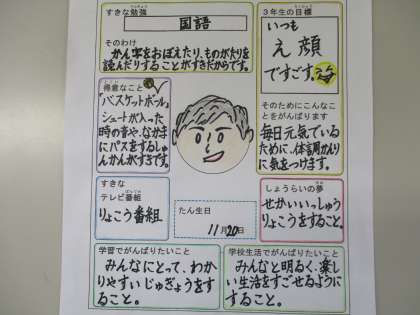 すきな勉強
国語
そのわけ
かん字をおぼえたり、ものがたりを
読んだりすることがすきだからです。
3年生の目標
いつも
え顔
ですごす。
そのためにこんなこ
とをがんばります
毎日元気でいる
ために、体調かんり
に気をつけます。
得意なこと
「バスケットボール」
シュートが入った
時の音や、なかま
にパスをするしゅ
んかんがすきです。
すきな
テレビ番組
りょこう番組
たん生日
11月20日
しょうらいの夢
せかいいっしゅう
りょこうをすること。
学習でがんばりたいこと
みんなにとって、わか
りやすいじゅぎょうをす
ること。
学校生活でがんばりたいこと
みんなと明るく、楽し
い生活をすごせるように
すること。